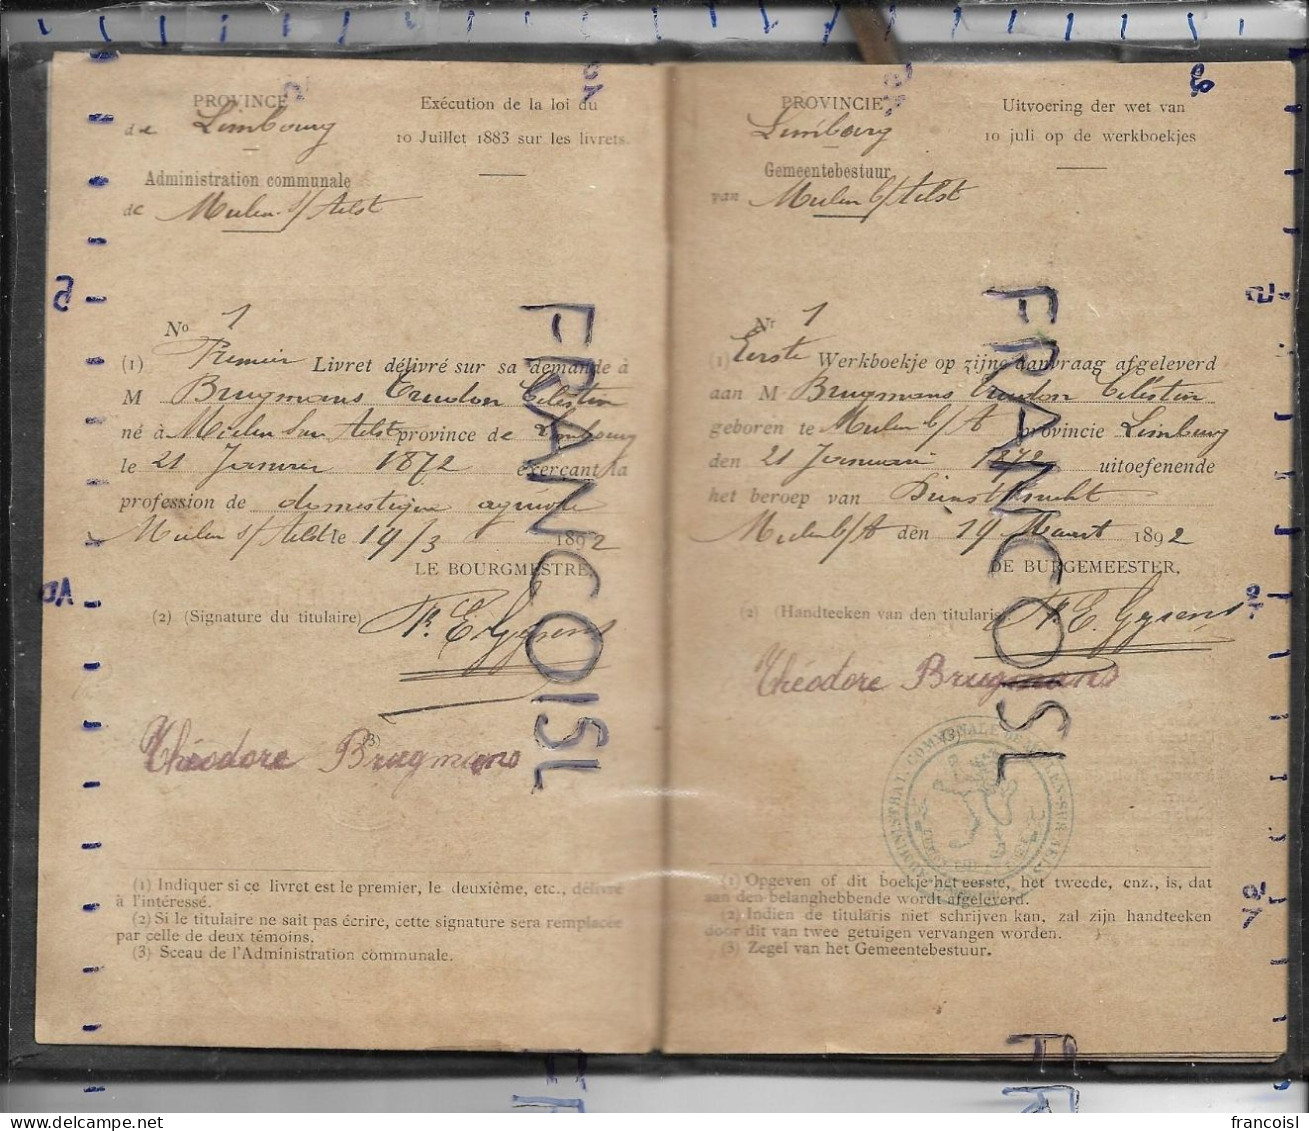 PROVINCE
de Limbourg
Exécution de la loi du
10 Juillet 1883 sur les livrets.
Administration communale
de Mielen s/ Aelst
No 1
(1) Premier Livret délivré sur sa demande à
M Brugmans Trudon Célestin
né à Mielen sur Aelst province de Limbourg
le 21 Janvier 1872 exerçant la
profession de domestique agricole
Mielen s/ Aelst le 19/3 1892
LE BOURGMESTRE,
(2) (Signature du titulaire)
Théodore Brugmans
(3)
(1) Indiquer si ce livret est le premier, le deuxième, etc., délivré
à l'intéressé.
(2) Si le titulaire ne sait pas écrire, cette signature sera remplacée
par celle de deux témoins.
(3) Sceau de l'Administration communale.
PROVINCIE
Limbourg
Uitvoering der wet van
10 juli op de werkboekjes
Gemeentebestuur
van Mielen b/ Aelst
Nr 1
(1) Eerste Werkboekje op zijne aanvraag afgeleverd
aan M Brugmans Trudon Célestin
geboren te Mielen b/ A provincie Limburg
den 21 Januari 1872 uitoefenende
het beroep van Dienstknecht
Mielen b/A den 19 Maart 1892
DE BURGEMEESTER,
(2) (Handteeken van den titularis)
Théodore Brugmans
(3)
(1) Opgeven of dit boekje het eerste, het tweede, enz., is, dat
aan den belanghebbende wordt afgeleverd.
(2) Indien de titularis niet schrijven kan, zal zijn handteeken
door dit van twee getuigen vervangen worden.
(3) Zegel van het Gemeentebestuur.
FRANCOISL
FRANCOISL
francoisl